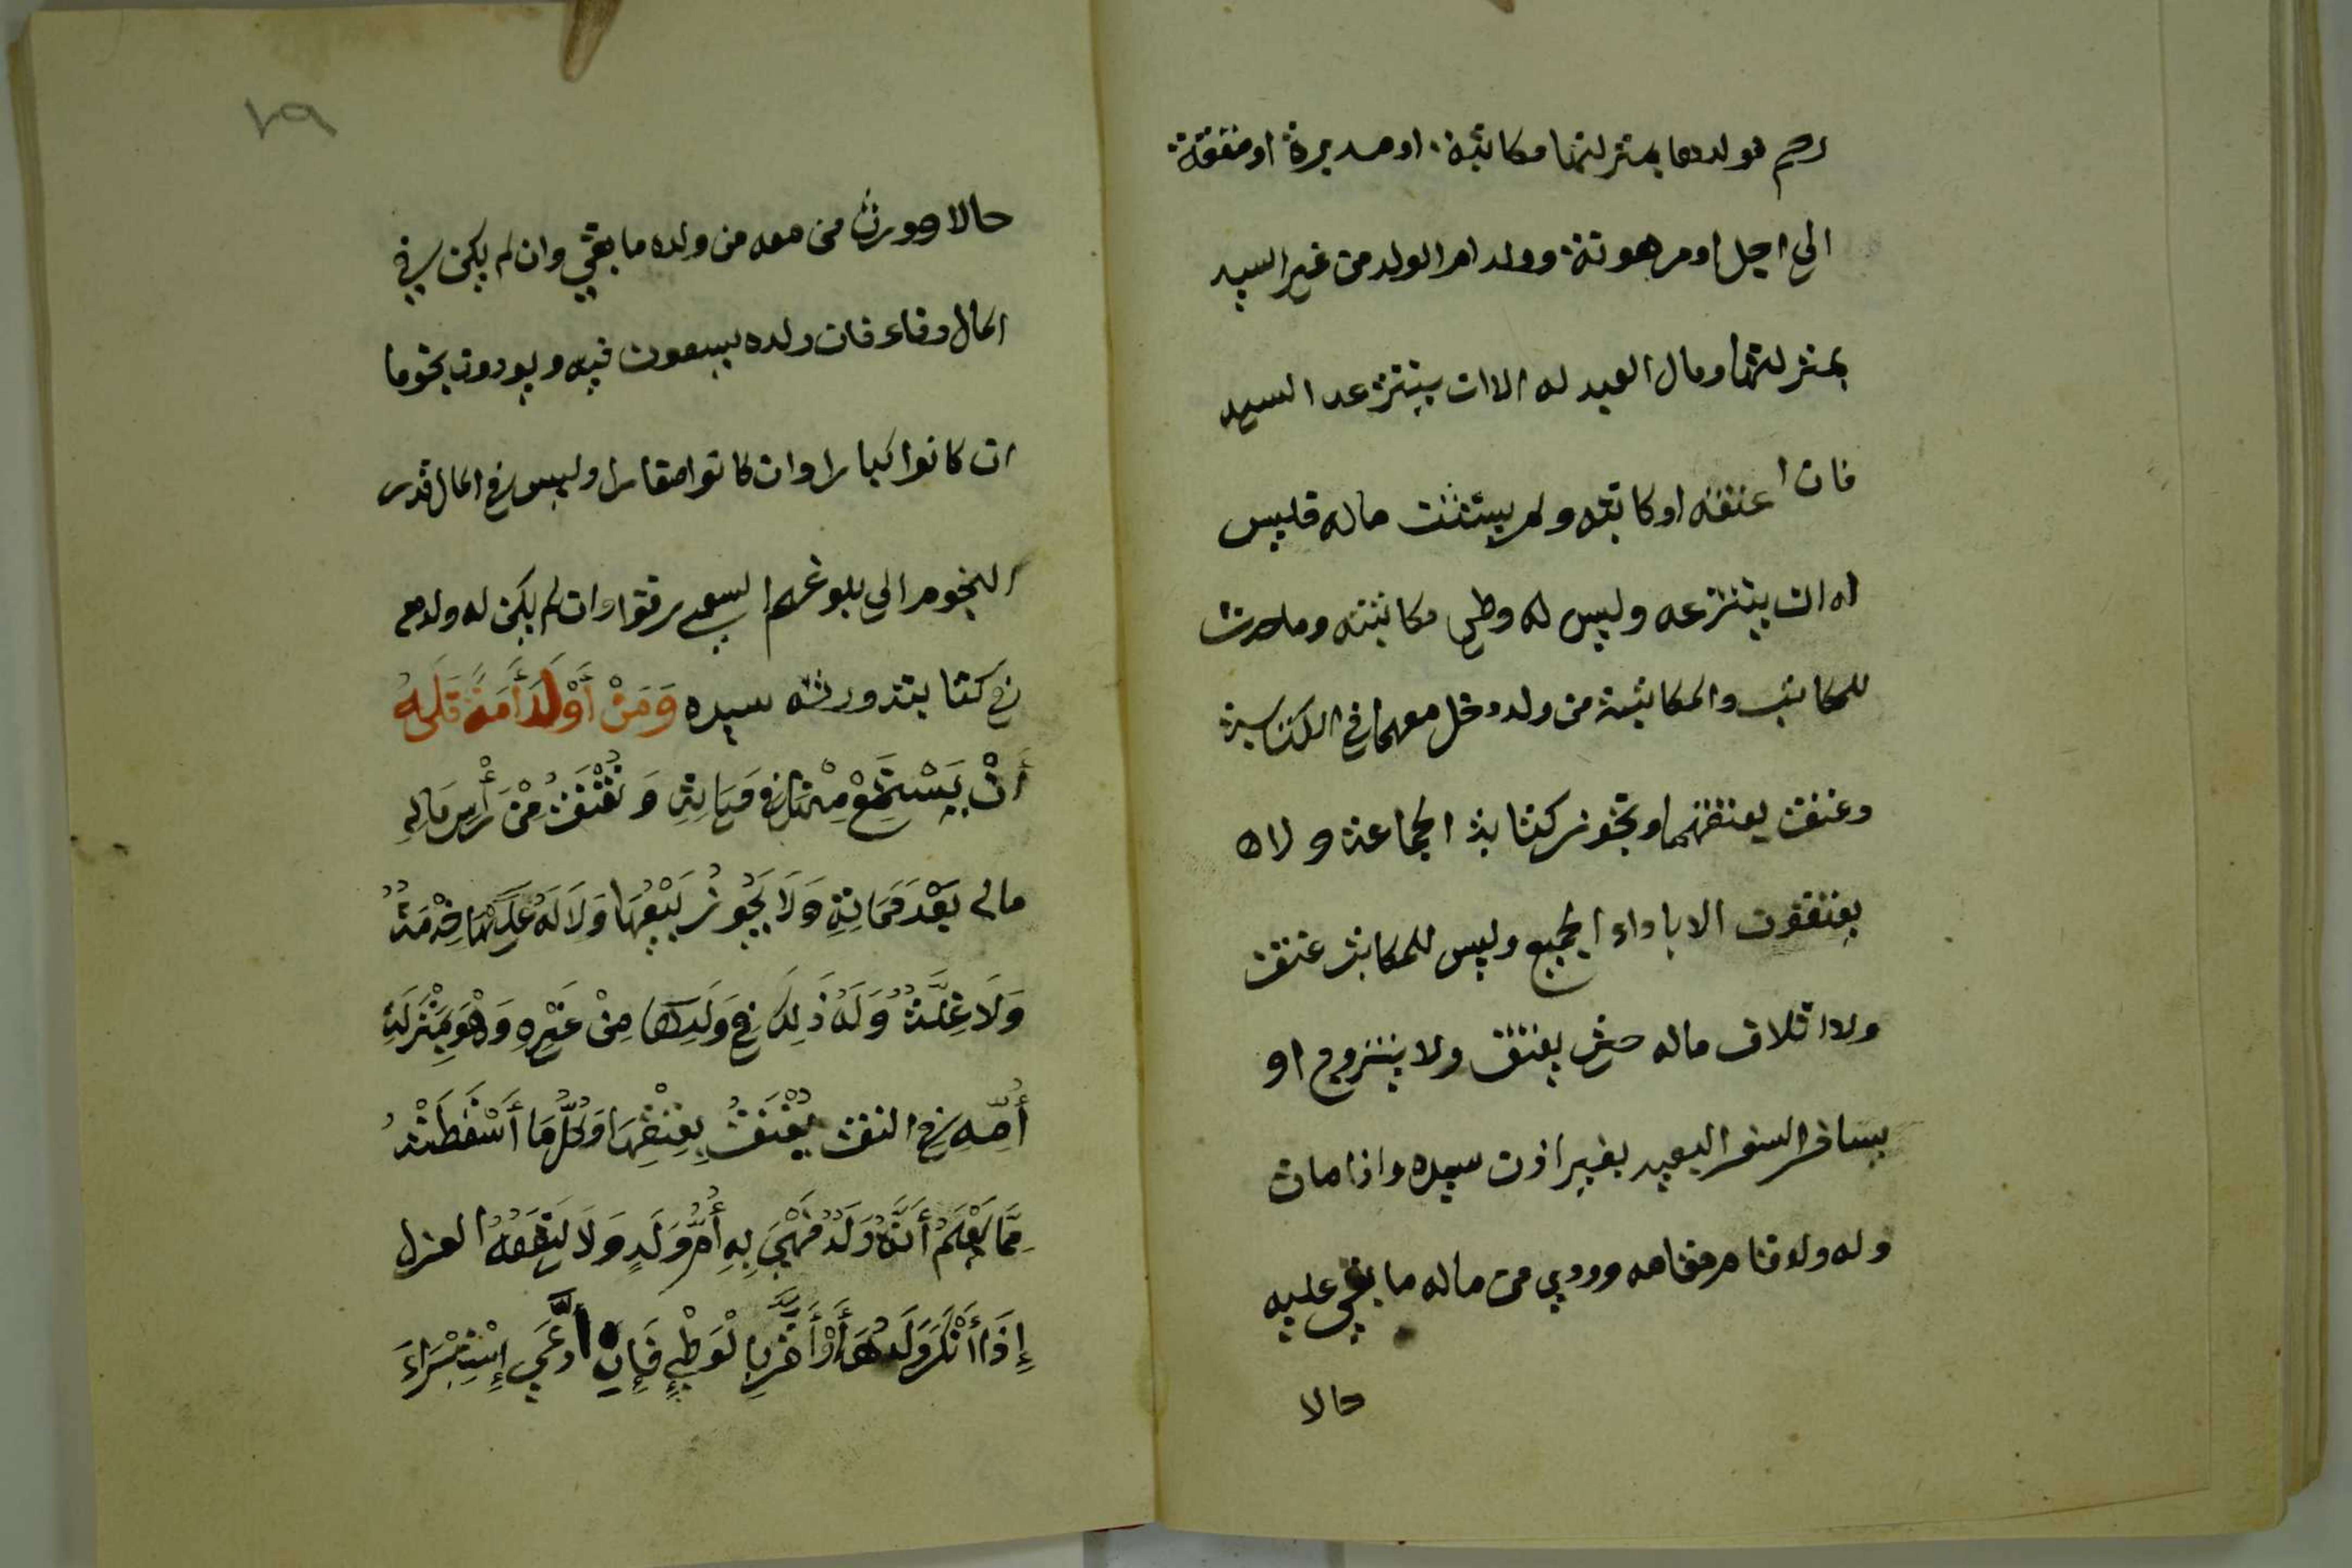 رحم فولدها بمنزلتها مكاتبة او مدبرة او معتقة
الي اجل او مرهونة وولد ام الولد من غير السيد
بمنزلتها ومال العبد له الا ان ينتزعه السيد
فان اعتقه او كاتبه ولم يستثن ماله فليس
له ان ينتزعه وليس له وطي مكاتبته وما حدث
للمكاتب والمكاتبة من ولد دخل معهما في الكتابة
وعتق بعتقهما وتجوز كتابة الجماعة ولا
يعتقون الا باداء الجميع وليس للمكاتب عتق
ولا اتلاف ماله حتي يعتق ولا يتزوج او
يسافر السفر البعيد بغير اذن سيده واذا مات
وله ولد قام مقامه وودي من ماله ما بقي عليه
حالا
١٩
حالا وورث من معه من ولده ما بقي وان لم يكن في
المال وفاء فان ولده يسعون فيه ويودون نجوما
ان كانوا كبارا وان كانوا صغارا وليس في المال قدر
النجوم الي بلوغهم السعي رقوا وان لم يكن له ولد مع
في كتابته ورثه سيده وَمَنْ أَوْلَدَ أَمَةً فَلَهُ
أَنْ يَسْتَمْتِعَ مِنْهَا فِي حَيَاتِهِ وَتُعْتَقُ مِنْ رَأْسِ مَالِهِ
مالي بَعْدَ مَمَاتِهِ وَلَا يَجُوزُ بَيْعُهَا وَلَا لَهُ عَلَيْهَا خِدْمَةٌ
وَلَا غِلَّةٌ وَلَهُ ذَلِكَ فِي وَلَدِهَا مِنْ غَيْرِهِ وَهُوَ بِمَنْزِلَةِ
أُمِّهِ فِي العتق يُعْتَقُ بِعِتْقِهَا وَكُلُّ مَا أَسْقَطَتْهُ
مِمَّا يُعْلَمُ أَنَّهُ وَلَدٌ فَهْيَ بِهِ أُمُّ وَلَدٍ وَلَا يَنْفَعُهُ العزل
إِذَا أَنْكَرَ وَلَدَهَا وَأَقَرَّ بِالْوَطْيِ فَإِنِ ادَّعَي إِسْتِبْرَاءً